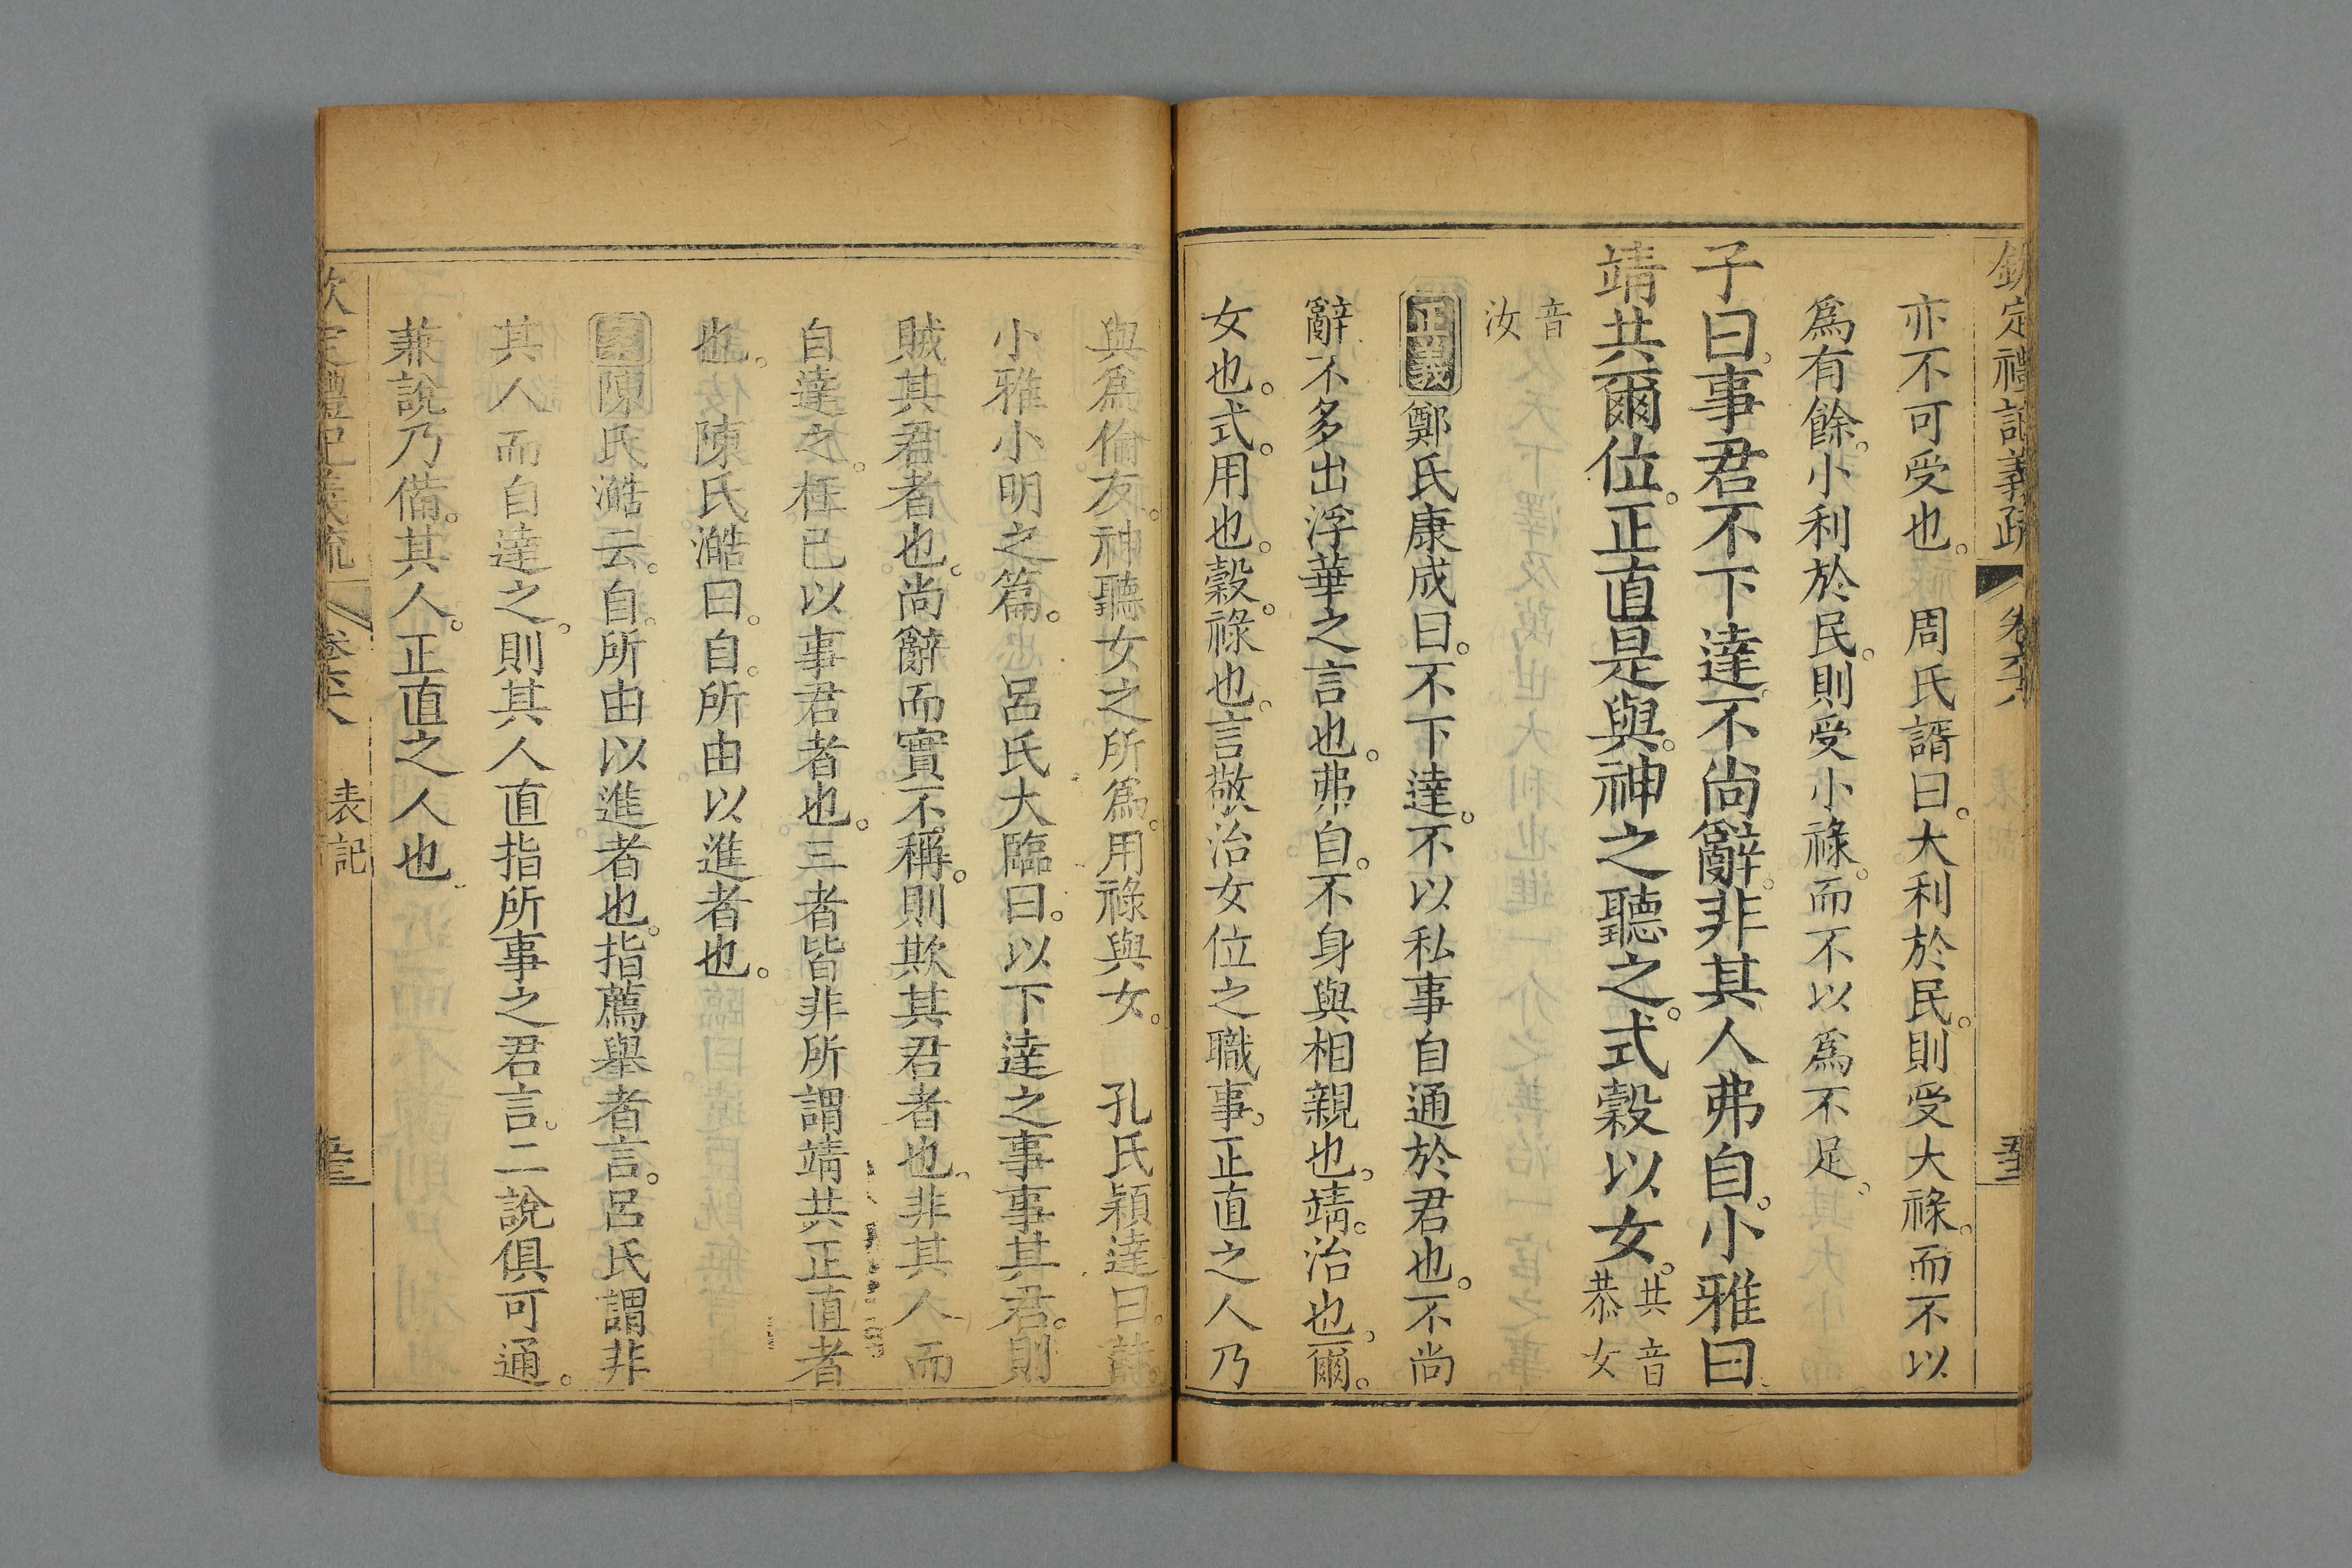 欽定禮記義疏 卷六十八
亦不可受也。 周氏諝曰。大利於民。則受大祿。而不以
爲有餘。小利於民。則受小祿。而不以爲不足。
子曰。事君不下達。不尚辭。非其人弗自。小雅曰
靖共爾位。正直是與。神之聽之。式穀以女。共音恭女
音汝
正義鄭氏康成曰。不下達。不以私事自通於君也。不尚
辭不多出浮華之言也。弗自。不身與相親也。靖。治也。爾。
女也。式。用也。穀。祿也。言敬治女位之職事。正直之人乃
與爲倫友。神聽女之所爲。用祿與女。 孔氏穎達曰。詩。
小雅小明之篇。 呂氏大臨曰。以下達之事事其君。則
賊其君者也。尚辭而實不稱。則欺其君者也。非其人而
自達之。枉己以事君者也。三者皆非所謂靖共正直者
也。 陳氏澔曰。自。所由以進者也。
陳氏澔云。自。所由以進者也。指薦舉者言。呂氏謂非
其人而自達之。則其人直指所事之君言。二說俱可通。
兼說乃備。其人。正直之人也
欽定禮記義疏 卷六十八 表記